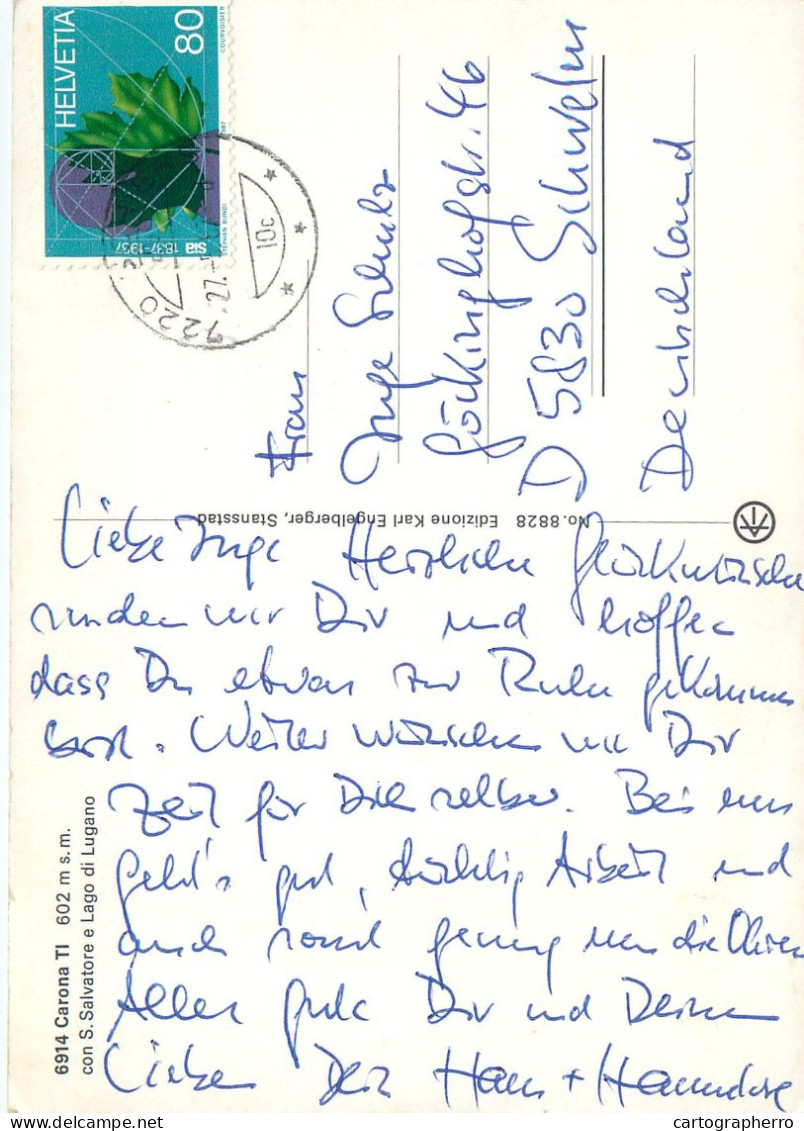 HELVETIA 80
COURVOISIER
STEPHAN BUNDI
sia 1837-1937
27.
10c
Frau
Inge Schulz
D 5830 Schwelm
Deutschland
No. 8828 Edizione Karl Engelberger, Stansstad
Liebe Inge Herzliche Glückwünsche
senden wir Dir und hoffen
dass Du etwas zur Ruhe gekommen
bist. Weiter wünschen wir Dir
Zeit für Dich selber. Bei uns
geht's gut, tüchtig Arbeit und
auch sonst genug um die Ohren
Alles gute Dir und Deinen
Lieben Dein Hans + Hannelore
6914 Carona TI 602 m s.m.
con S. Salvatore e Lago di Lugano
cartographerro